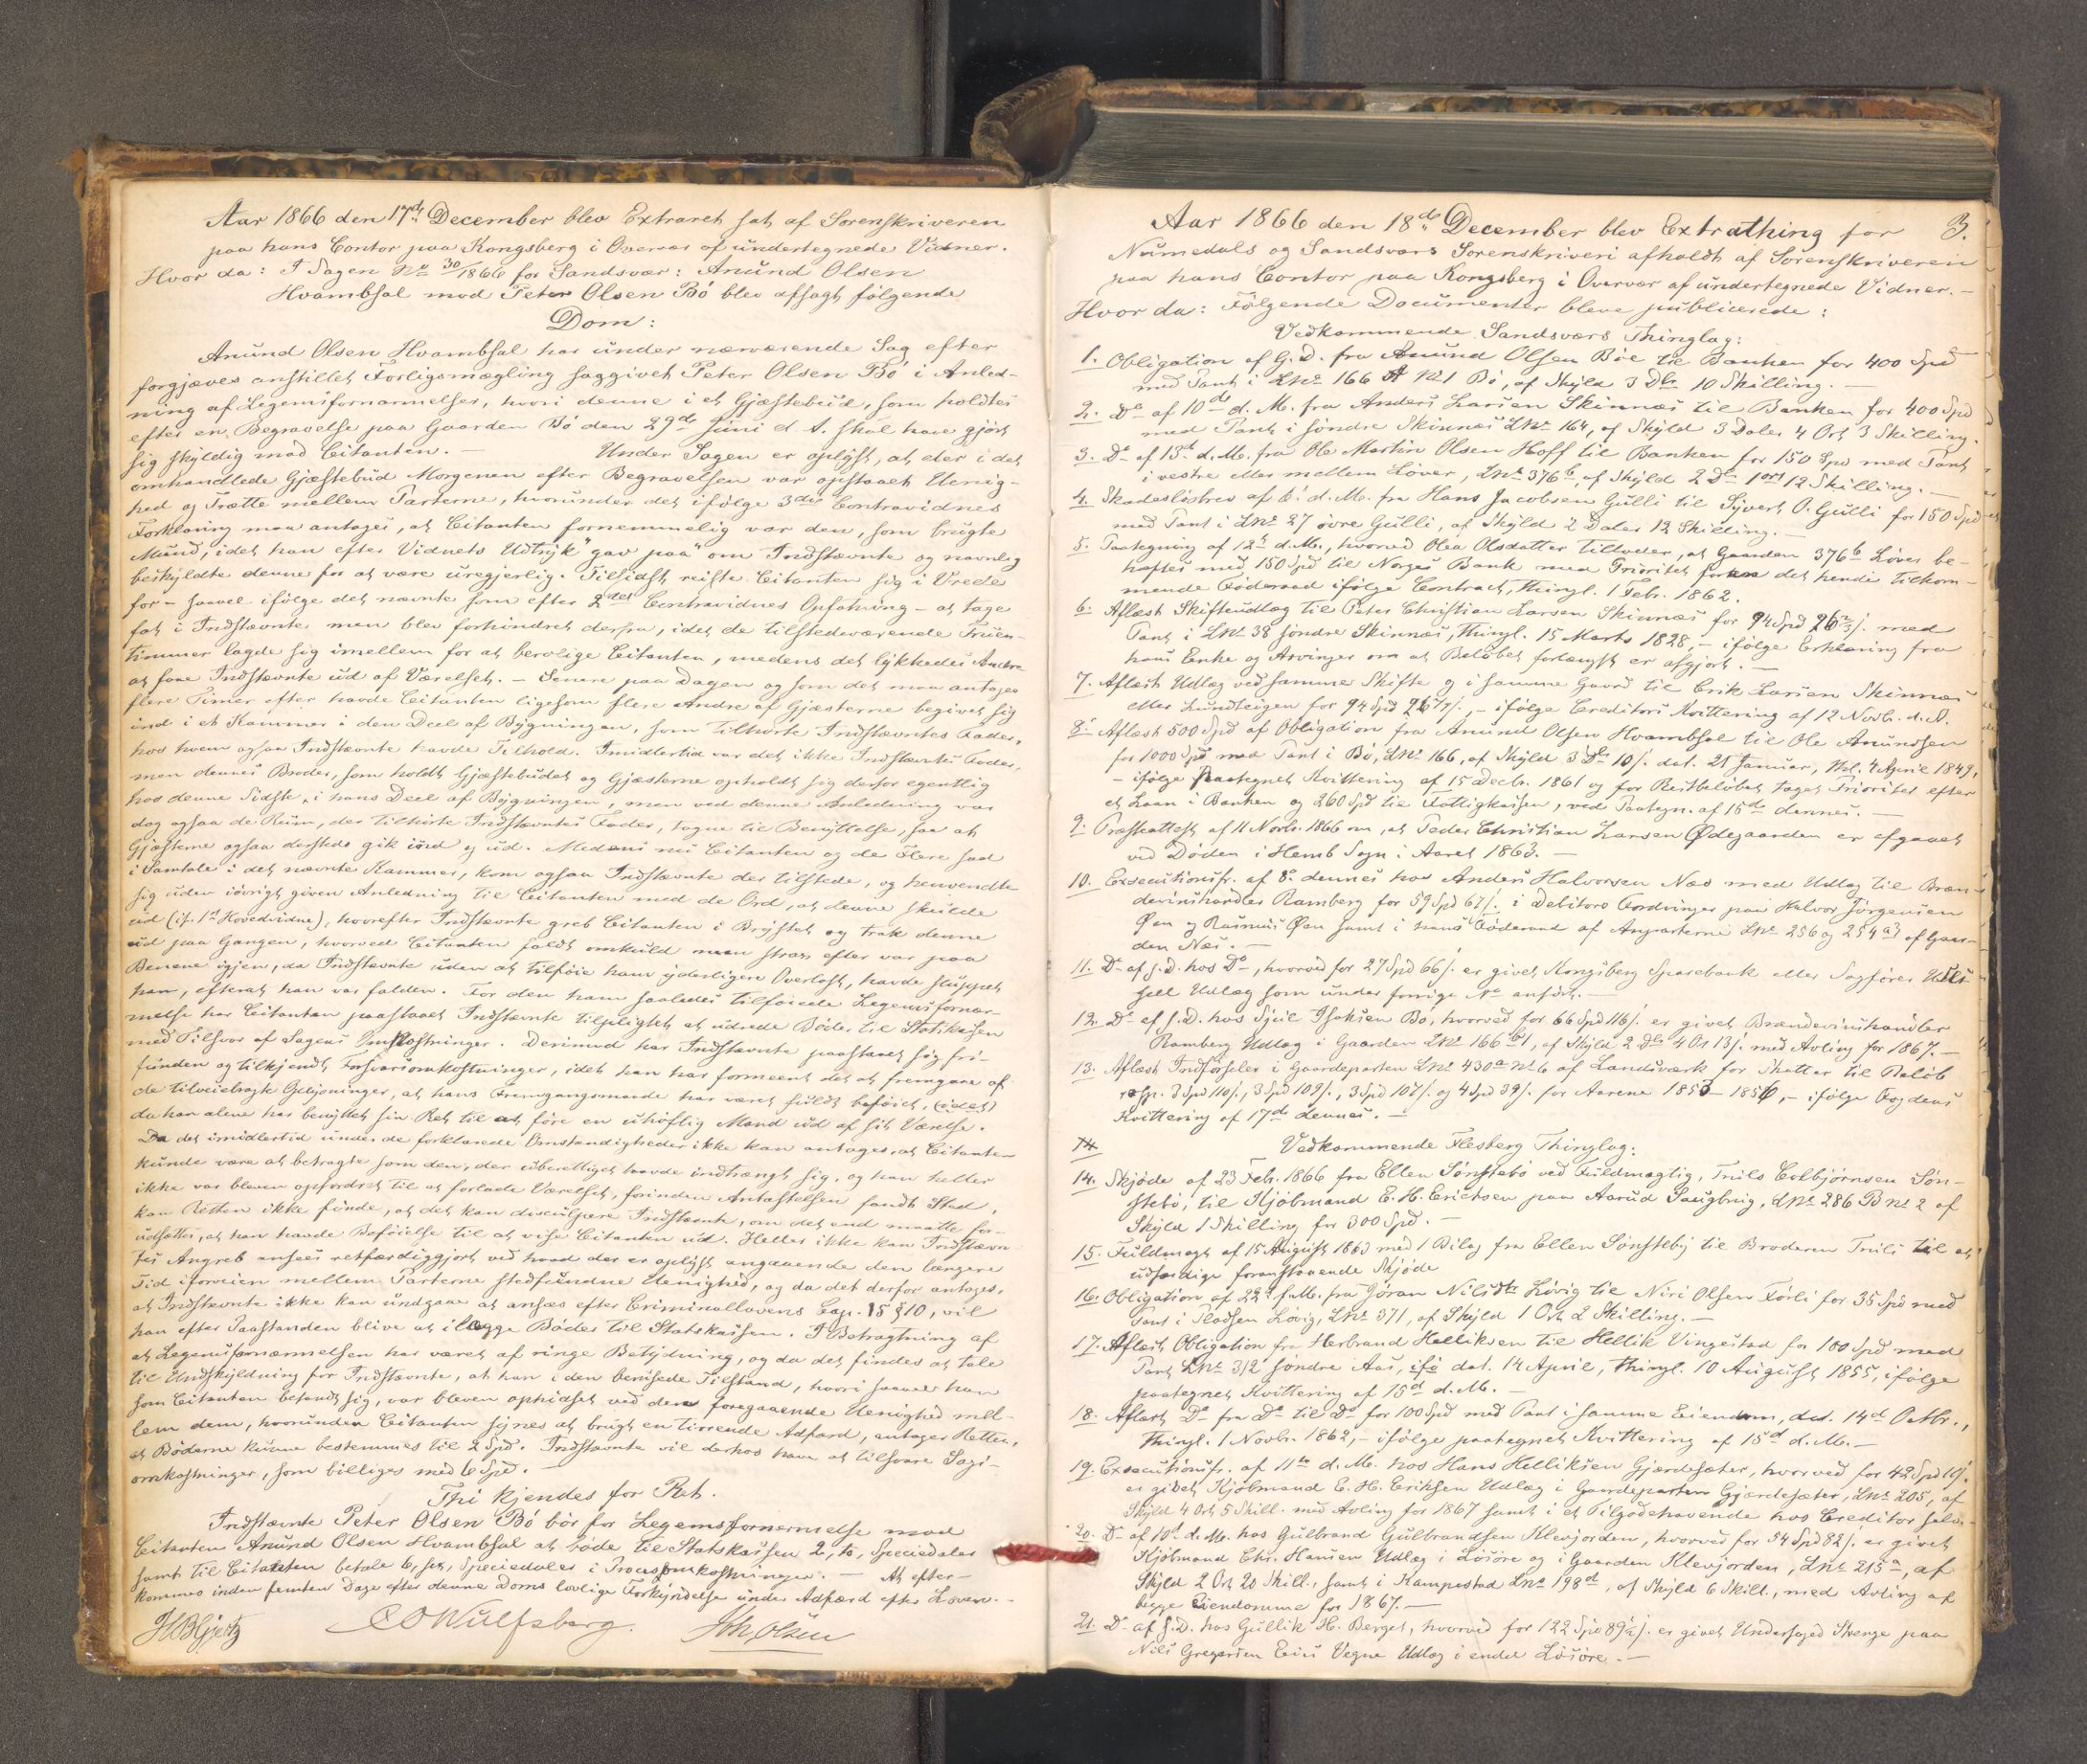 Aar 1866 den 17de December blev Extraret sat af Sorenskriveren
paa hans Contor paa Kongsberg i Overvær af undertegnede Vidner.
Hvor da: I Sagen No 30/1866 for Sandsvær: Anund Olsen
Hvambsal mod Peter Olsen Bö blev afsagt følgende
Dom:
Anund Olsen Hvambsal har under nærværende Sag efter
forgjæves anstillet Forligsmægling saggivet Peter Olsen Bö i Anled-
ning af Legemsfornærmelser, hvori denne i et Gjæstebud, som holdtes
efter en Begravelse paa Gaarden Bö den 29de Juni d. A. skal have gjort
sig skyldig mod Citanten. — Under Sagen er oplyst, at der i det
omhandlede Gjæstebud Morgenen efter Begravelsen var opstaaet Uenig-
hed og Trætte mellem Parterne, hvorunder det ifølge 3die Contravidnes
Forklaring maa antages, at Citanten fornemmelig var den, som brugte
Mund, idet han efter Vidnets Udtryk "gav paa" om Indstævnte og navnlig
beskyldte denne for at være uregjerlig. Tilsidst reiste Citanten sig i Vrede
for - saavel ifølge det nævnte som efter 2det Contravidnes Opfatning - at tage
fat i Indstævnte men blev forhindret derfra, idet de tilstedeværende Fruen-
timmer lagde sig imellem for at berolige Citanten, medens det lykkedes Andre
at faae Indstævnte ud af Værelset. - Senere paa Dagen og som det maa antages
flere Timer efter havde Citanten ligesom flere Andre af Gjæsterne begivet sig
ind i et Kammer i den Deel af Bygningen, som tilhørte Indstævntes Fader,
hos hvem ogsaa Indstævnte havde Tilhold. Imidlertid var det ikke Indstævntes Fader,
men dennes Broder, som holdt Gjæstebudet og Gjæsterne opholdt sig derfor egentlig
hos denne Sidste, i hans Deel af Bygningen, men ved denne Anledning var
dog ogsaa de Rum, der tilhörte Indstævntes Fader, tagne til Benyttelse, saa at
Gjæsterne ogsaa dersteds gik ind og ud. Medens nu Citanten og de Flere sad
i Samtale i det nævnte Kammer, kom ogsaa Indstævnte der tilstede, og henvendte
sig uden iövrigt given Anledning til Citanten med de Ord, at denne skulde
ud (if. 1st Hovedvidne), hvorefter Indstævnte greb Citanten i Brystet og trak denne
ud paa Gangen, hvorved Citanten faldt omkuld men strax efter var paa
Benene igjen, da Indstævnte uden at tilföie ham yderligere Overlast, havde sluppet
ham, efterat han var falden. For den ham saaledes tilföiede Legemsfornær-
melse har Citanten paastaaet Indstævnte tilpligtet at udrede Böder til Statskassen
med Tilsvar af Sagens Omkostninger. Derimod har Indstævnte paastaaet sig fri-
funden og tilkjendt Forsvarsomkostninger, idet han har formeent det at fremgaae af
de tilveiebragte Oplysninger, at hans Fremgangsmaade har været fuldt beföiet, (idet)
da han alene har benyttet sin Ret til at före en uhöflig Mand ud af sit Værelse.
Da det imidlertid under de forklarede Omstændigheder ikke kan antages, at Citanten
kunde være at betragte som den, der uberettiget havde indtrængt sig, og han heller
ikke var bleven opfordret til at forlade Værelset, forinden Antastelsen fandt Sted,
kan Retten ikke finde, at det kan disculpere Indstævnte, om det end maatte for-
udsættes, at han havde Beföielse til at vise Citanten ud. Heller ikke kan Indstævn-
tes Angreb ansees retfærdiggjort ved hvad der er oplyst angaaende den længere
Tid iforveien mellem Parterne stedfundne Uenighed, og da det derfor antages,
at Indstævnte ikke kan undgaae at ansees efter Criminallovens Cap. 15 § 10, vil
han efter Paastanden blive at ilægge Böder til Statskassen. I Betragtning af
at Legemsfornærmelsen har været af ringe Betydning, og da det findes at tale
til Undskyldning for Indstævnte, at han i den berusede Tilstand, hvori saavel han
som Citanten befandt sig, var bleven ophidset ved den foregaaende Uenighed mel-
lem dem, hvorunder Citanten synes at brugt en tirrende Adfærd, antager Retten,
at Böderne kunne bestemmes til 2 Spd. Indstævnte vil derhos have at tilsvare Sags-
omkostninger, som billiges med 6 Spd. -
Thi kjendes for Ret.
Indstævnte Peter Olsen Bö bör for Legemsfornærmelse mod
Citanten Anund Olsen Hvambsal at böde til Statskassen 2, to, Speciedaler
samt til Citanten betale 6, sex, Speciedaler i Procesomkostninger. — At efter-
kommes inden femten Dage efter denne Doms lovlige Forkyndelse under Adfærd efter Loven. -
C O Wulfsberg. Joh. Olsen
3.
Aar 1866 den 18de December blev Extrathing for
Numedals og Sandsværs Sorenskriveri afholdt af Sorenskriveren
paa hans Contor paa Kongsberg i Overvær af undertegnede Vidner. -
Hvor da: Følgende Documenter bleve publicerede:
Vedkommende Sandsværs Thinglag:
1. Obligation af G. D. fra Anund Olsen Böe til Banken for 400 Spd
med Pant i LNo 166 A No 1 Bö, af Skyld 3 Dlr 10 Skilling. -
2. Do af 10de d. M. fra Anders Larsen Skinnæs til Banken for 400 Spd
med Pant i söndre Skinnæs LNo 164, af Skyld 3 Daler 4 Ort 3 Skilling.
3. Do af 13de d. M. fra Ole Martin Olsen Hoff til Banken for 150 Spd med Pant
i vestre eller mellem Löver, LNo 376b, af Skyld 2 Dr 1 ort 12 Skilling. -
4. Skadeslösbrev af 6te d. M. fra Hans Jacobsen Gulli til Syvert O. Gulli for 150 Spd
med Pant i LNo 27 övre Gulli, af Skyld 2 Daler 12 Skilling. -
5. Paategning af 12te d. M., hvorved Olea Olsdatter tillader, at Gaarden 376b Löver be-
hæftes med 150 Spd til Norges Bank med Prioritet foran det hende tilkom-
mende Föderaad ifølge Contract, thingl. 1 Febr. 1862.
6. Aflæst Skifteudlæg til Peter Christian Larsen Skinnæs for 94 Spd 26 2/3 s. med
Pant i LNo 38 söndre Skinnæs, thingl. 15 Marts 1828, - ifølge Erklæring fra
hans Enke og Arvinger om at Belöbet forlængst er afgjort. -
7. Aflæst Udlæg ved samme Skifte og i samme Gaard til Erik Larsen Skinnæs
eller Lundteigen for 94 Spd 26 2/3 s., - ifølge Creditors Kvittering af 12 Novb. d. A.
8. Aflæst 500 Spd af Obligation fra Anund Olsen Hvambsal til Ole Anundsen
for 1000 Spd med Pant i Bö, LNo 166, af Skyld 3 Dlr 10 s. dat. 21 Januar, thl. 4 April 1849,
- ifølge paategnet Kvittering af 15 Decb. 1861 og for Restbelöbet taget Prioritet efter
et Laan i Banken og 260 Spd til Fattigkassen, ved Paategn. af 15de dennes. -
9. Præsteattest af 11 Novb. 1866 om, at Peder Christian Larsen Ødegaarden er afgaaet
ved Döden i Hemb Sogn i Aaret 1863. -
10. Executionsfr. af 8de dennes hos Anders Halvorsen Næs med Udlæg til Bræn-
devinshandler Ramberg for 59 Spd 67 s. i Debitors Fordringer paa Halvor Jörgensen
Øen og Rasmus Øen samt i hans Föderaad af Anparterne LNo 256 og 254 a3 af Gaar-
den Næs. -
11. Do af s. D. hos Do, hvorved for 27 Spd 66 s. er givet Kongsberg Sparebank eller Sagförer
Udlæg som under forrige No anfört. -
12. Do af s. D. hos Sjul Isaksen Bö, hvorved for 66 Spd 116 s. er givet Brændevinshandler
Ramberg Udlæg i Gaarden LNo 166 b1, af Skyld 2 Dlr 4 Ort 13 s. med Avling for 1867. -
13. Aflæst Indförsler i Gaardeparten LNo 430a No 6 af Landsværk for Skatter til Belöb
resp. 3 Spd 110 s., 3 Spd 109 s., 3 Spd 107 s. og 4 Spd 39 s. for Aarene 1853 - 1856, - ifølge Fogdens
Kvittering af 17de dennes. -
14 Vedkommende Flesberg Thinglag:
14. Skjöde af 23 Feb. 1866 fra Ellen Sönstebö ved Fuldmægtig, Truls Colbjörnsen Sön-
stebö, til Kjöbmand E. H. Ericksen paa Aarud Saugbrug, LNo 286 B No 2 af
Skyld 1 Skilling for 300 Spd. -
15. Fuldmagt af 15 August 1863 med 1 Bilag fra Ellen Sönsteby til Broderen Truls til at
udfærdige foranstaaende Skjöde
16. Obligation af 22de f. M. fra Jöran Nilsdtr Lövig til Niri Olsen Förli for 35 Spd med
Pant i Pladsen Lövig, LNo 371, af Skyld 1 Ort 2 Skilling. -
17. Aflæst Obligation fra Herbrand Helliksen til Hellik Vingestad for 100 Spd med
Pant LNo 312 söndre Aas, dat. 14 April, thingl. 10 August 1855, ifølge
paategnet Kvittering af 15de d. M. -
18. Aflæst Do fra Do til Do for 100 Spd med Pant i samme Eiendom, dat. 14de Octbr.,
thingl. 1 Novbr. 1862, - ifølge paategnet Kvittering af 15de d. M. -
19. Executionsfr. af 11te d. M. hos Hans Helliksen Gjærdesæter, hvorved for 42 Spd 19 s.
er givet Kjöbmand E. H. Eriksen Udlæg i Gaardeparten Gjærdesæter, LNo 205, af
Skyld 4 Ort 5 Skill. med Avling for 1867 samt i et Tilgodehavende hos Creditor selv. -
20. Do af 10de d. M. hos Gulbrand Gulbrandsen Klevjorden, hvorved for 54 Spd 82 s. er givet
Kjöbmand Chr. Hansen Udlæg i Lösöre og i Gaarden Klevjorden, LNo 215a, af
Skyld 2 Ort 20 Skill., samt i Kampestad LNo 198d, af Skyld 6 Skill., med Avling af
begge Eiendomme for 1867. -
21. Do af s. D. hos Gullik H. Berget, hvorved for 122 Spd 89 1/2 s. er givet Undersaged Strenge paa
Nils Gregersen Eies Vegne Udlæg i endel Lösöre. -